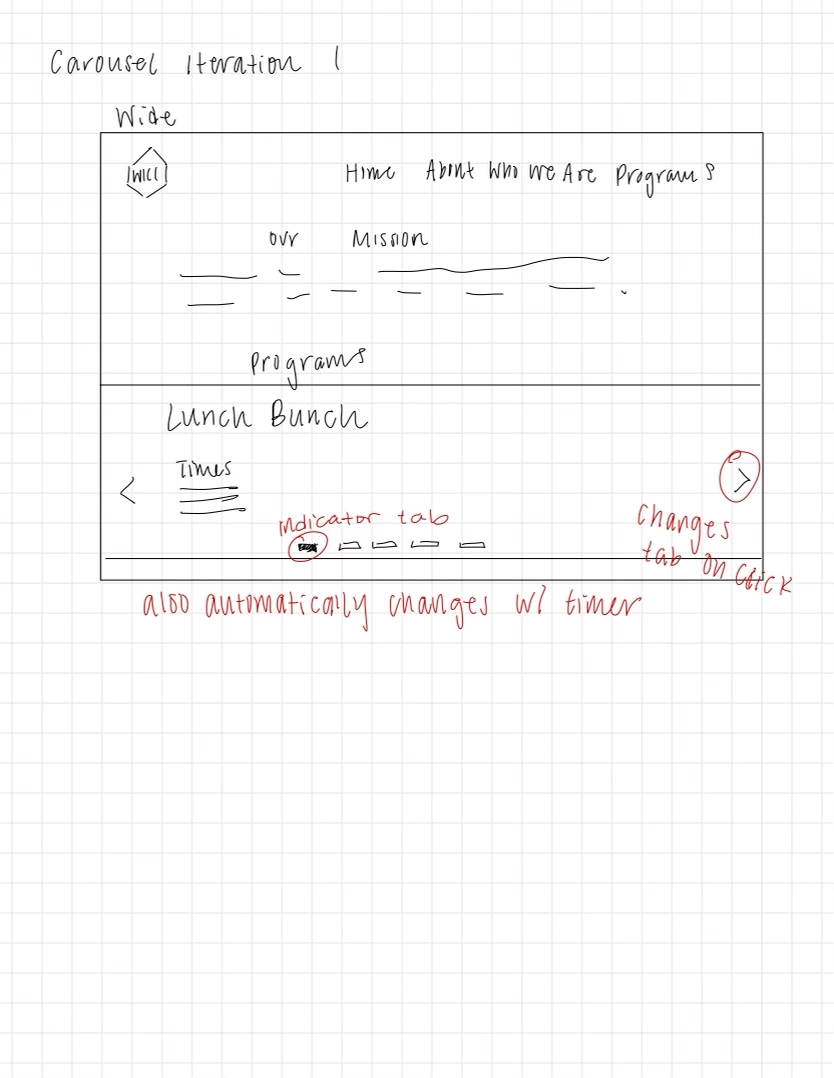 Carousel Iteration 1
Wide
WICC
Home About Who We Are Programs
Our Mission
Programs
Lunch Bunch
Times
<
>
indicator tab
Changes
tab on click
also automatically changes w/ timer